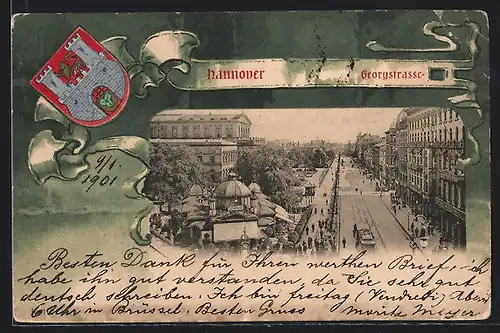 Hannover Georgstrasse
9/1.
1901
Besten Dank für Ihren werthen Brief, ich
habe ihn gut verstanden, da Sie sehr gut
deutsch schreiben. Ich bin freitag (Vendredi) Abend
6 Uhr in Brüssel. Besten Gruss Moritz Meyer